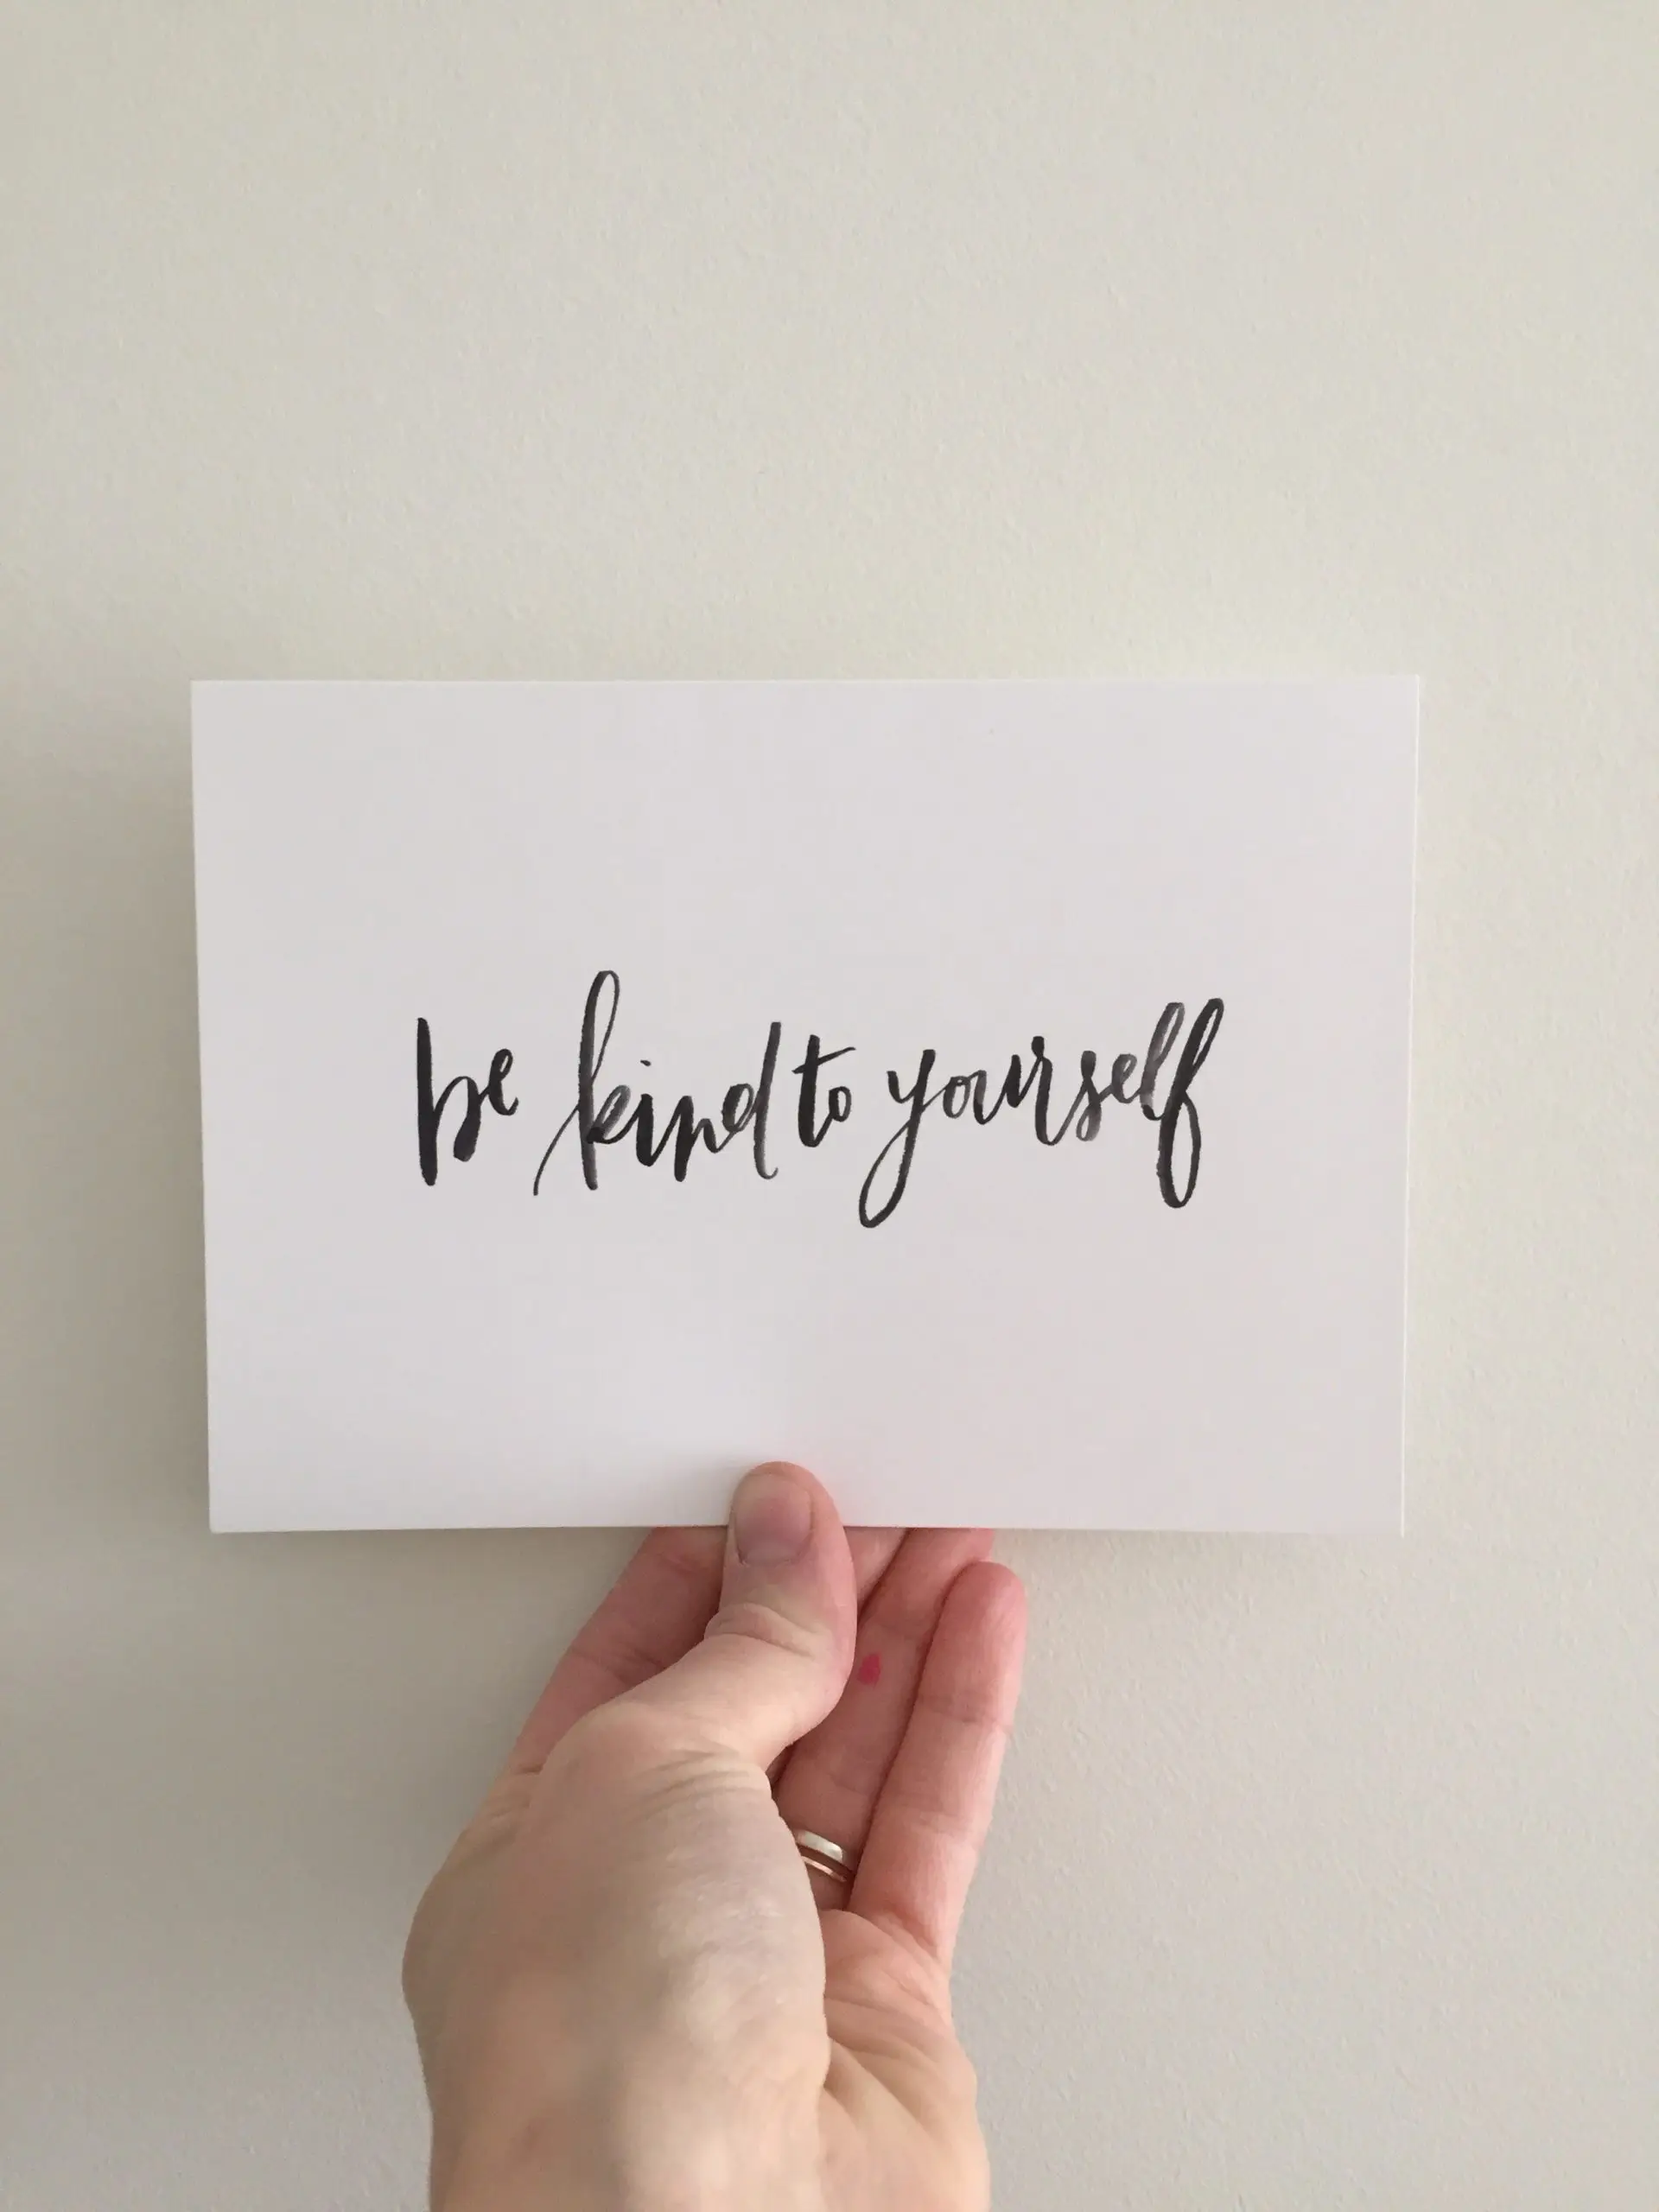 be kind to yourself